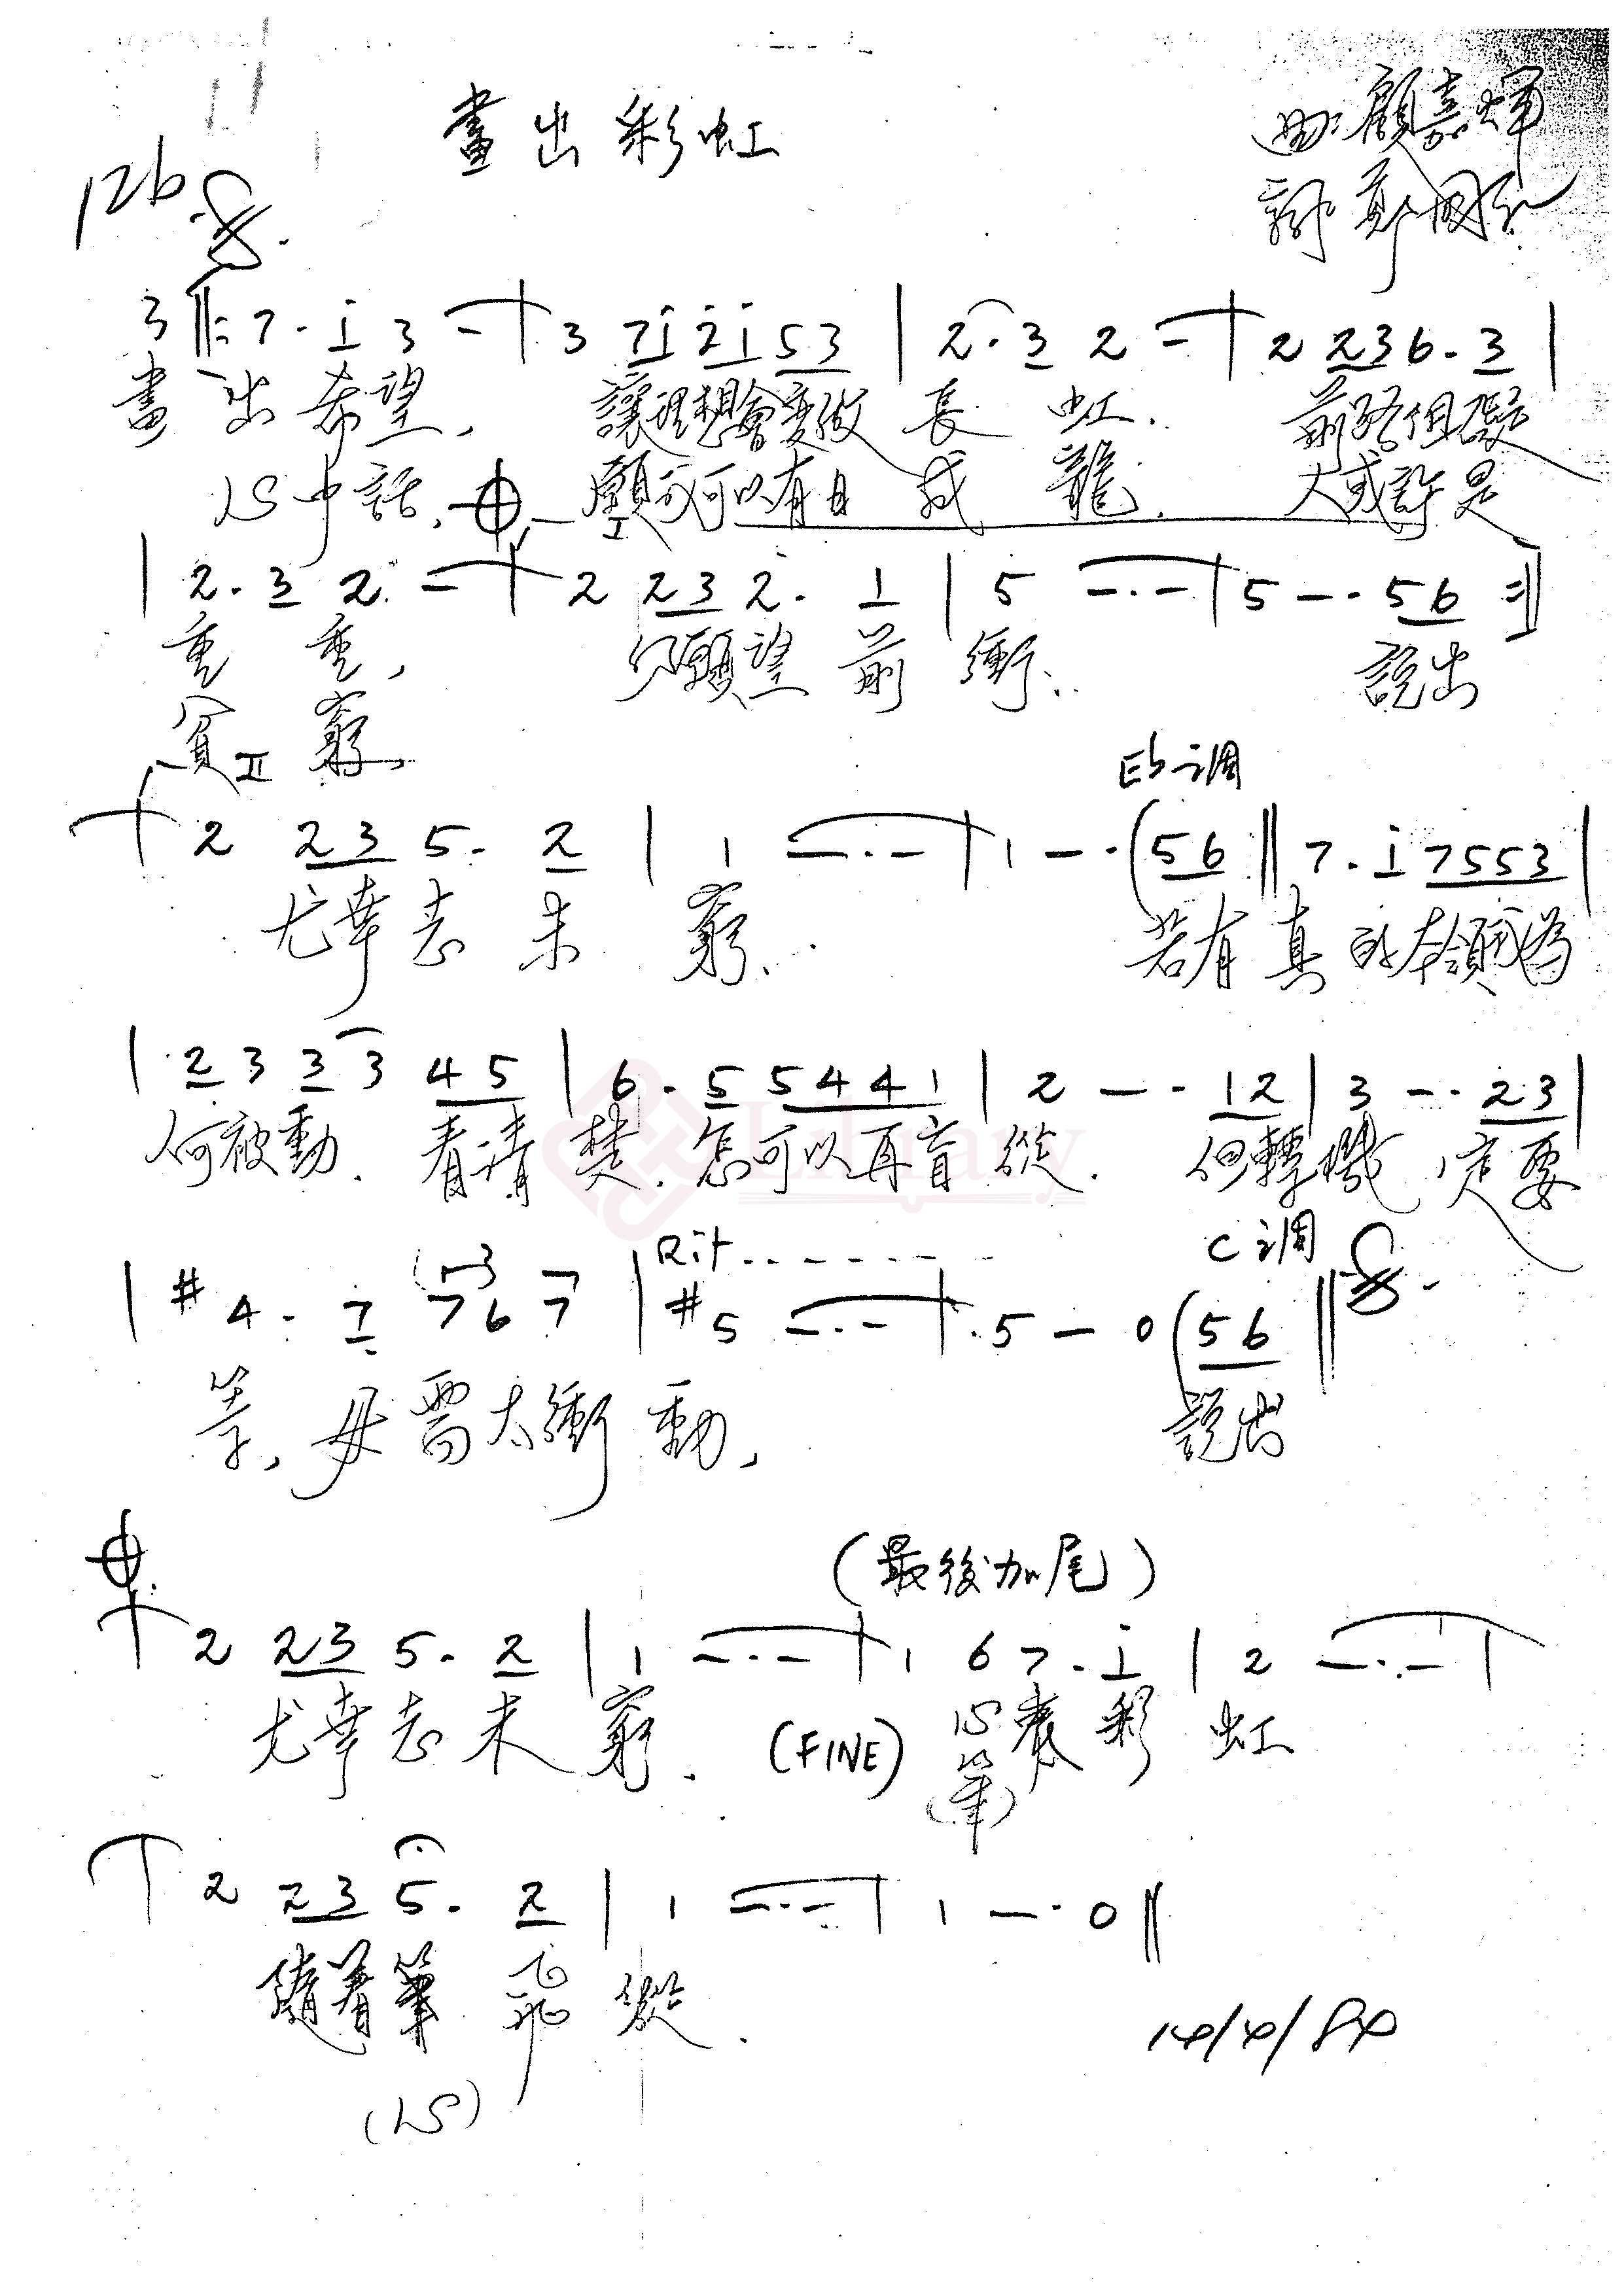 畫出彩虹
曲:顧嘉煇
詞:鄭國江
126
3 ‖: 7 · i 3 - | 3 7i2i53 | 2 · 3 2 - | 2 236 · 3 |
畫出希望,讓理想會變做長虹.前路但礙
心中話,願可可以有日成龍.人或許是
I
| 2 · 3 2 - | 2 232 · 1 | 5 - · - | 5 - · 56 :‖
重重,只願望前衝.說出
貧窮,
II
Eb調
2 23 5 · 2 | 1 - · - | 1 - · (56 ‖ 7 · i 7553 |
尤幸志未窮.若有真的本領我為
| 2 3 3 3 45 | 6 · 5 5441 | 2 - · 12 | 3 - · 23 |
何被動.看清楚.怎可以再盲從.但轉機一定要
Rit.......
C調
| #4 · 7 767 | #5 - · - | 5 - 0 (56 ‖
等,毋需太衝動,說出
(最後加尾)
2 23 5 · 2 | 1 - · - | 1 6 7 · i | 2 - · - |
尤幸志未窮.(FINE) 心裏彩虹
(筆)
2 23 5 · 2 | 1 - · - | 1 - · 0 ‖
隨着筆飛縱.
(心)
14/4/84
Library